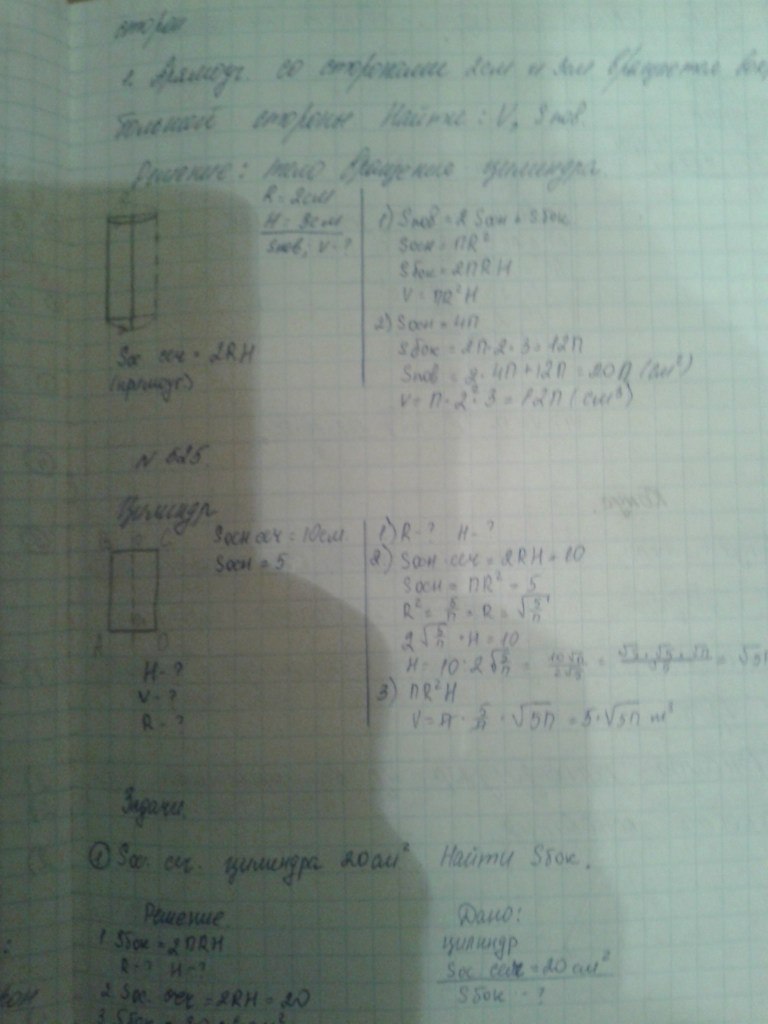 сторон
2. Прямоуг. со сторонами 2см и 3см вращается вок
большей стороны Найти: V, Sпов.
Решение: тело вращения цилиндра.
R = 2см
H = 3см
Sпов, V - ?
Sос сеч = 2RH
(прямоуг)
1) Sпов = 2Sосн + Sбок
Sосн = ПR²
Sбок = 2ПRH
V = ПR²H
2) Sосн = 4П
Sбок = 2П·2·3 = 12П
Sпов = 2·4П + 12П = 20П (см²)
V = П·2²·3 = 12П (см³)
N 525
Цилиндр
B C
A D
Sосн сеч = 10см
Sосн = 5
H - ?
V - ?
R - ?
1) R - ? H - ?
2) Sосн сеч = 2RH = 10
Sосн = ПR² = 5
R² = 5/П = R = √5/П
2√5/П · H = 10
H = 10 : 2√5/П = 10√П/2√5 =
3) ПR²H
V = П · 5/П · √5П = 5·√5П м³
Задачи
① Sос. сеч. цилиндра 20см² Найти Sбок.
Решение
1 Sбок = 2ПRH
R - ? H - ?
2 Sос. сеч = 2RH = 20
3 Sбок =
Дано:
цилиндр
Sос сеч = 20см²
Sбок - ?